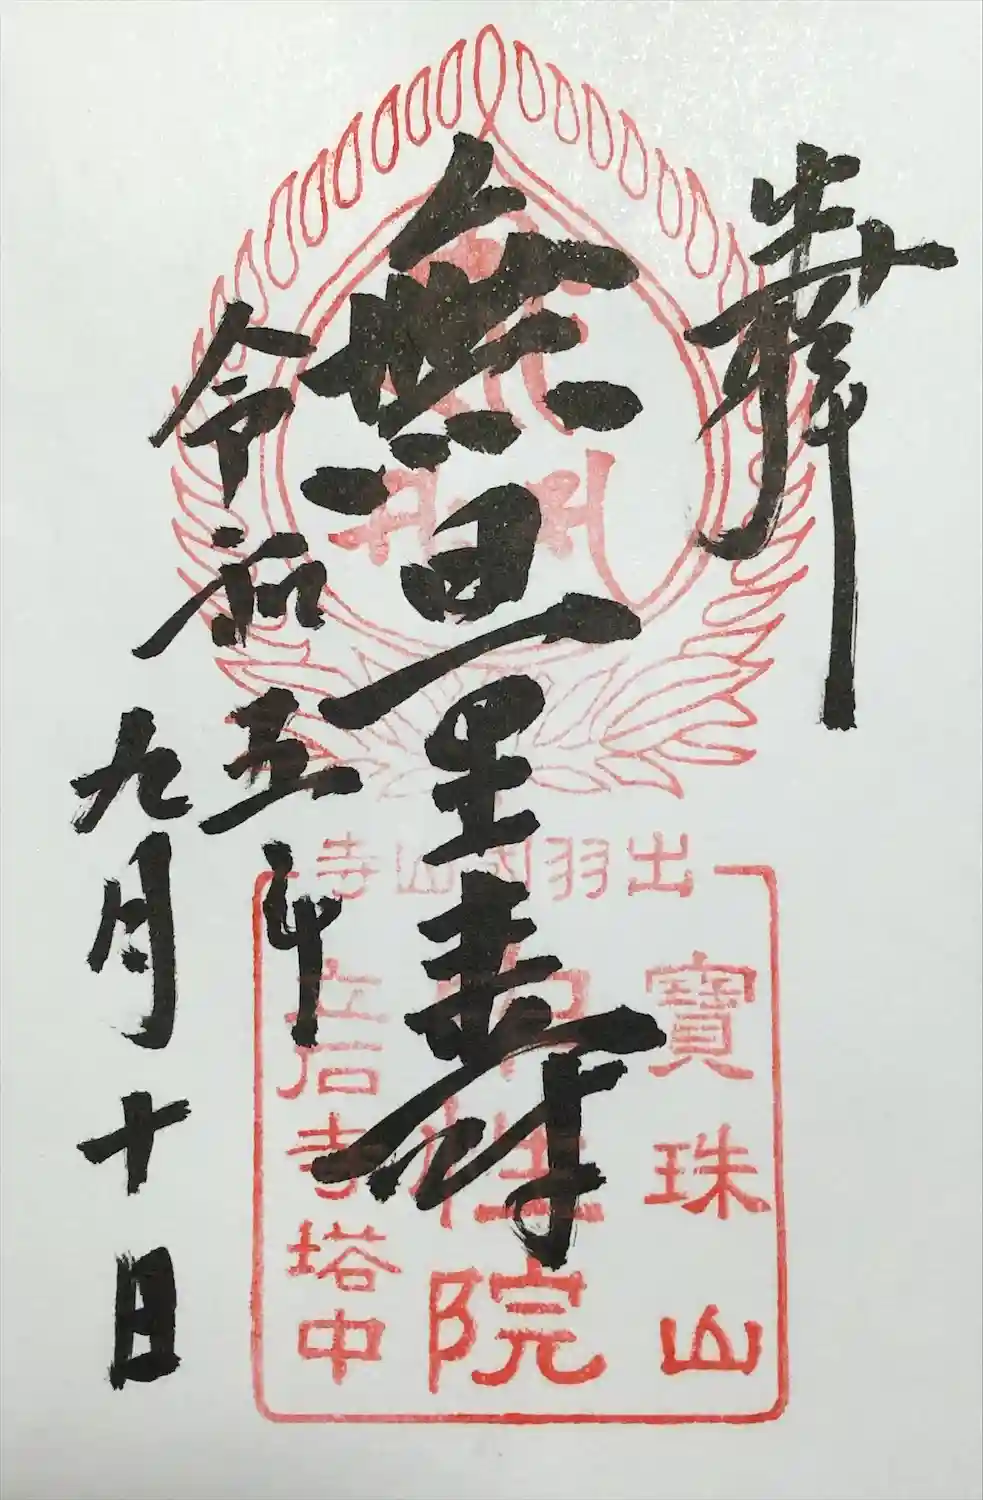 奉拝
無量寿
令和五年
九月十日
出羽國山寺
寳珠山
中性院
立石寺塔中